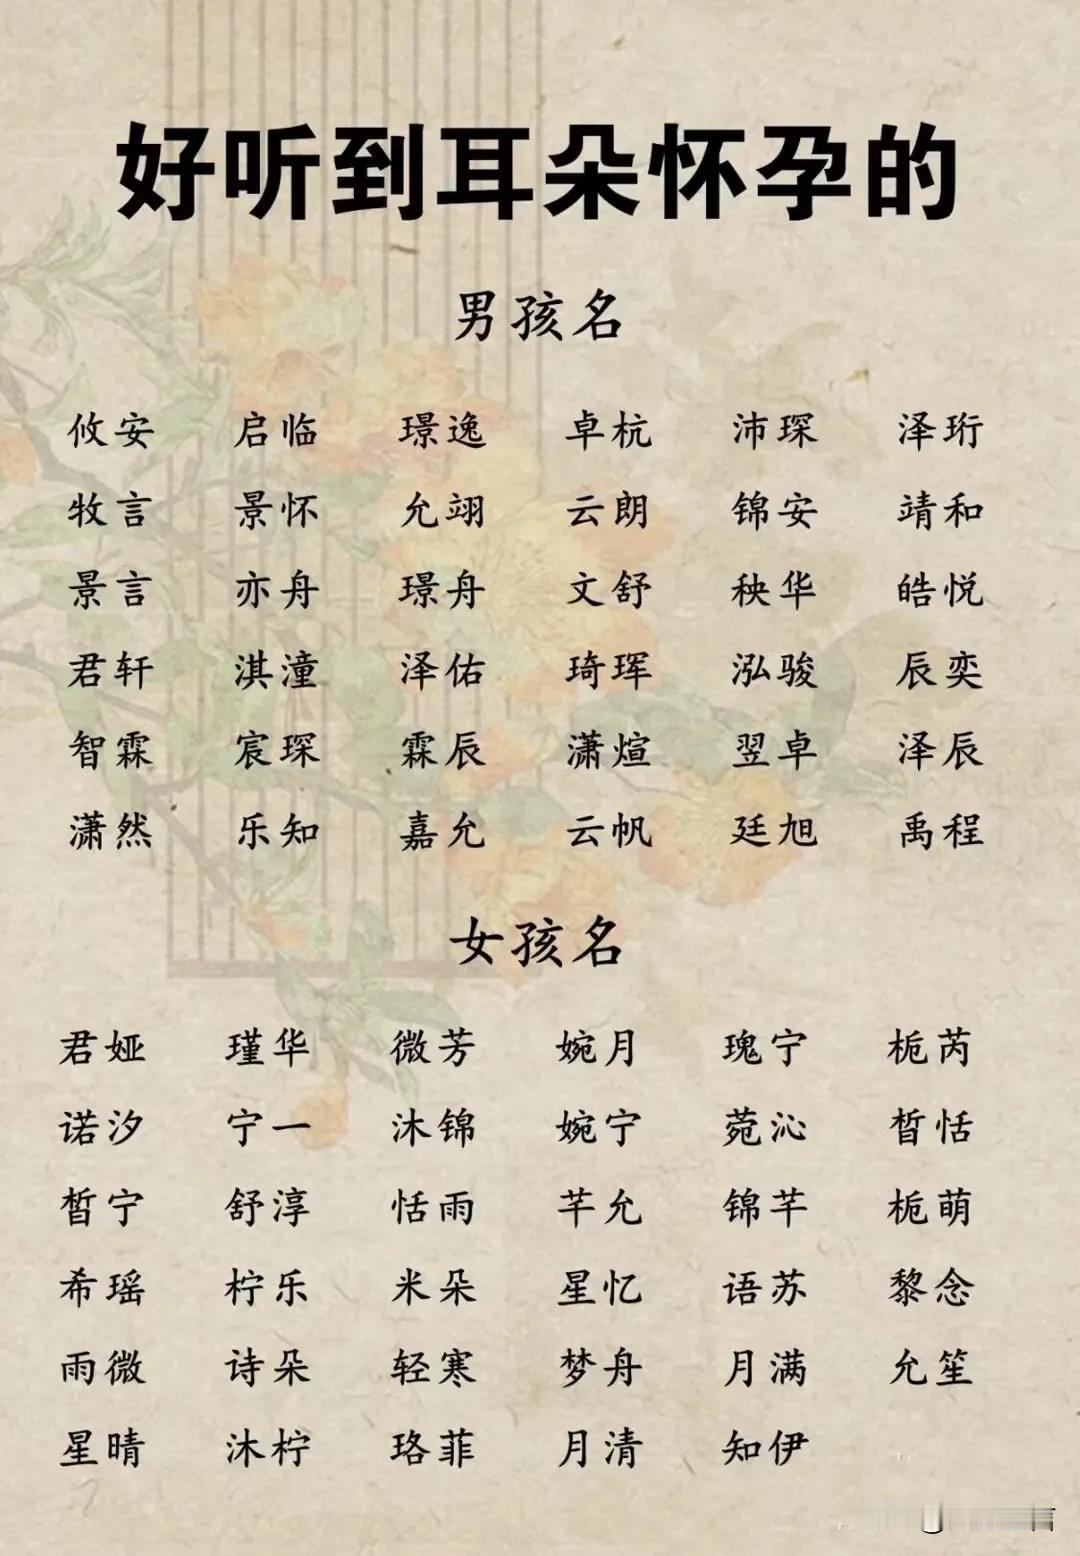 好听到耳朵怀孕的
男孩名
攸安 启临 璟逸 卓杭 沛琛 泽珩
牧言 景怀 允翊 云朗 锦安 靖和
景言 亦舟 璟舟 文舒 秧华 皓悦
君轩 淇潼 泽佑 琦珲 泓骏 辰奕
智霖 宸琛 霖辰 潇煊 翌卓 泽辰
潇然 乐知 嘉允 云帆 廷旭 禹程
女孩名
君娅 瑾华 微芳 婉月 瑰宁 栀芮
诺汐 宁一 沐锦 婉宁 菀沁 皙恬
皙宁 舒淳 恬雨 芊允 锦芊 栀萌
希瑶 柠乐 米朵 星忆 语苏 黎念
雨微 诗朵 轻寒 梦舟 月满 允笙
星晴 沐柠 珞菲 月清 知伊